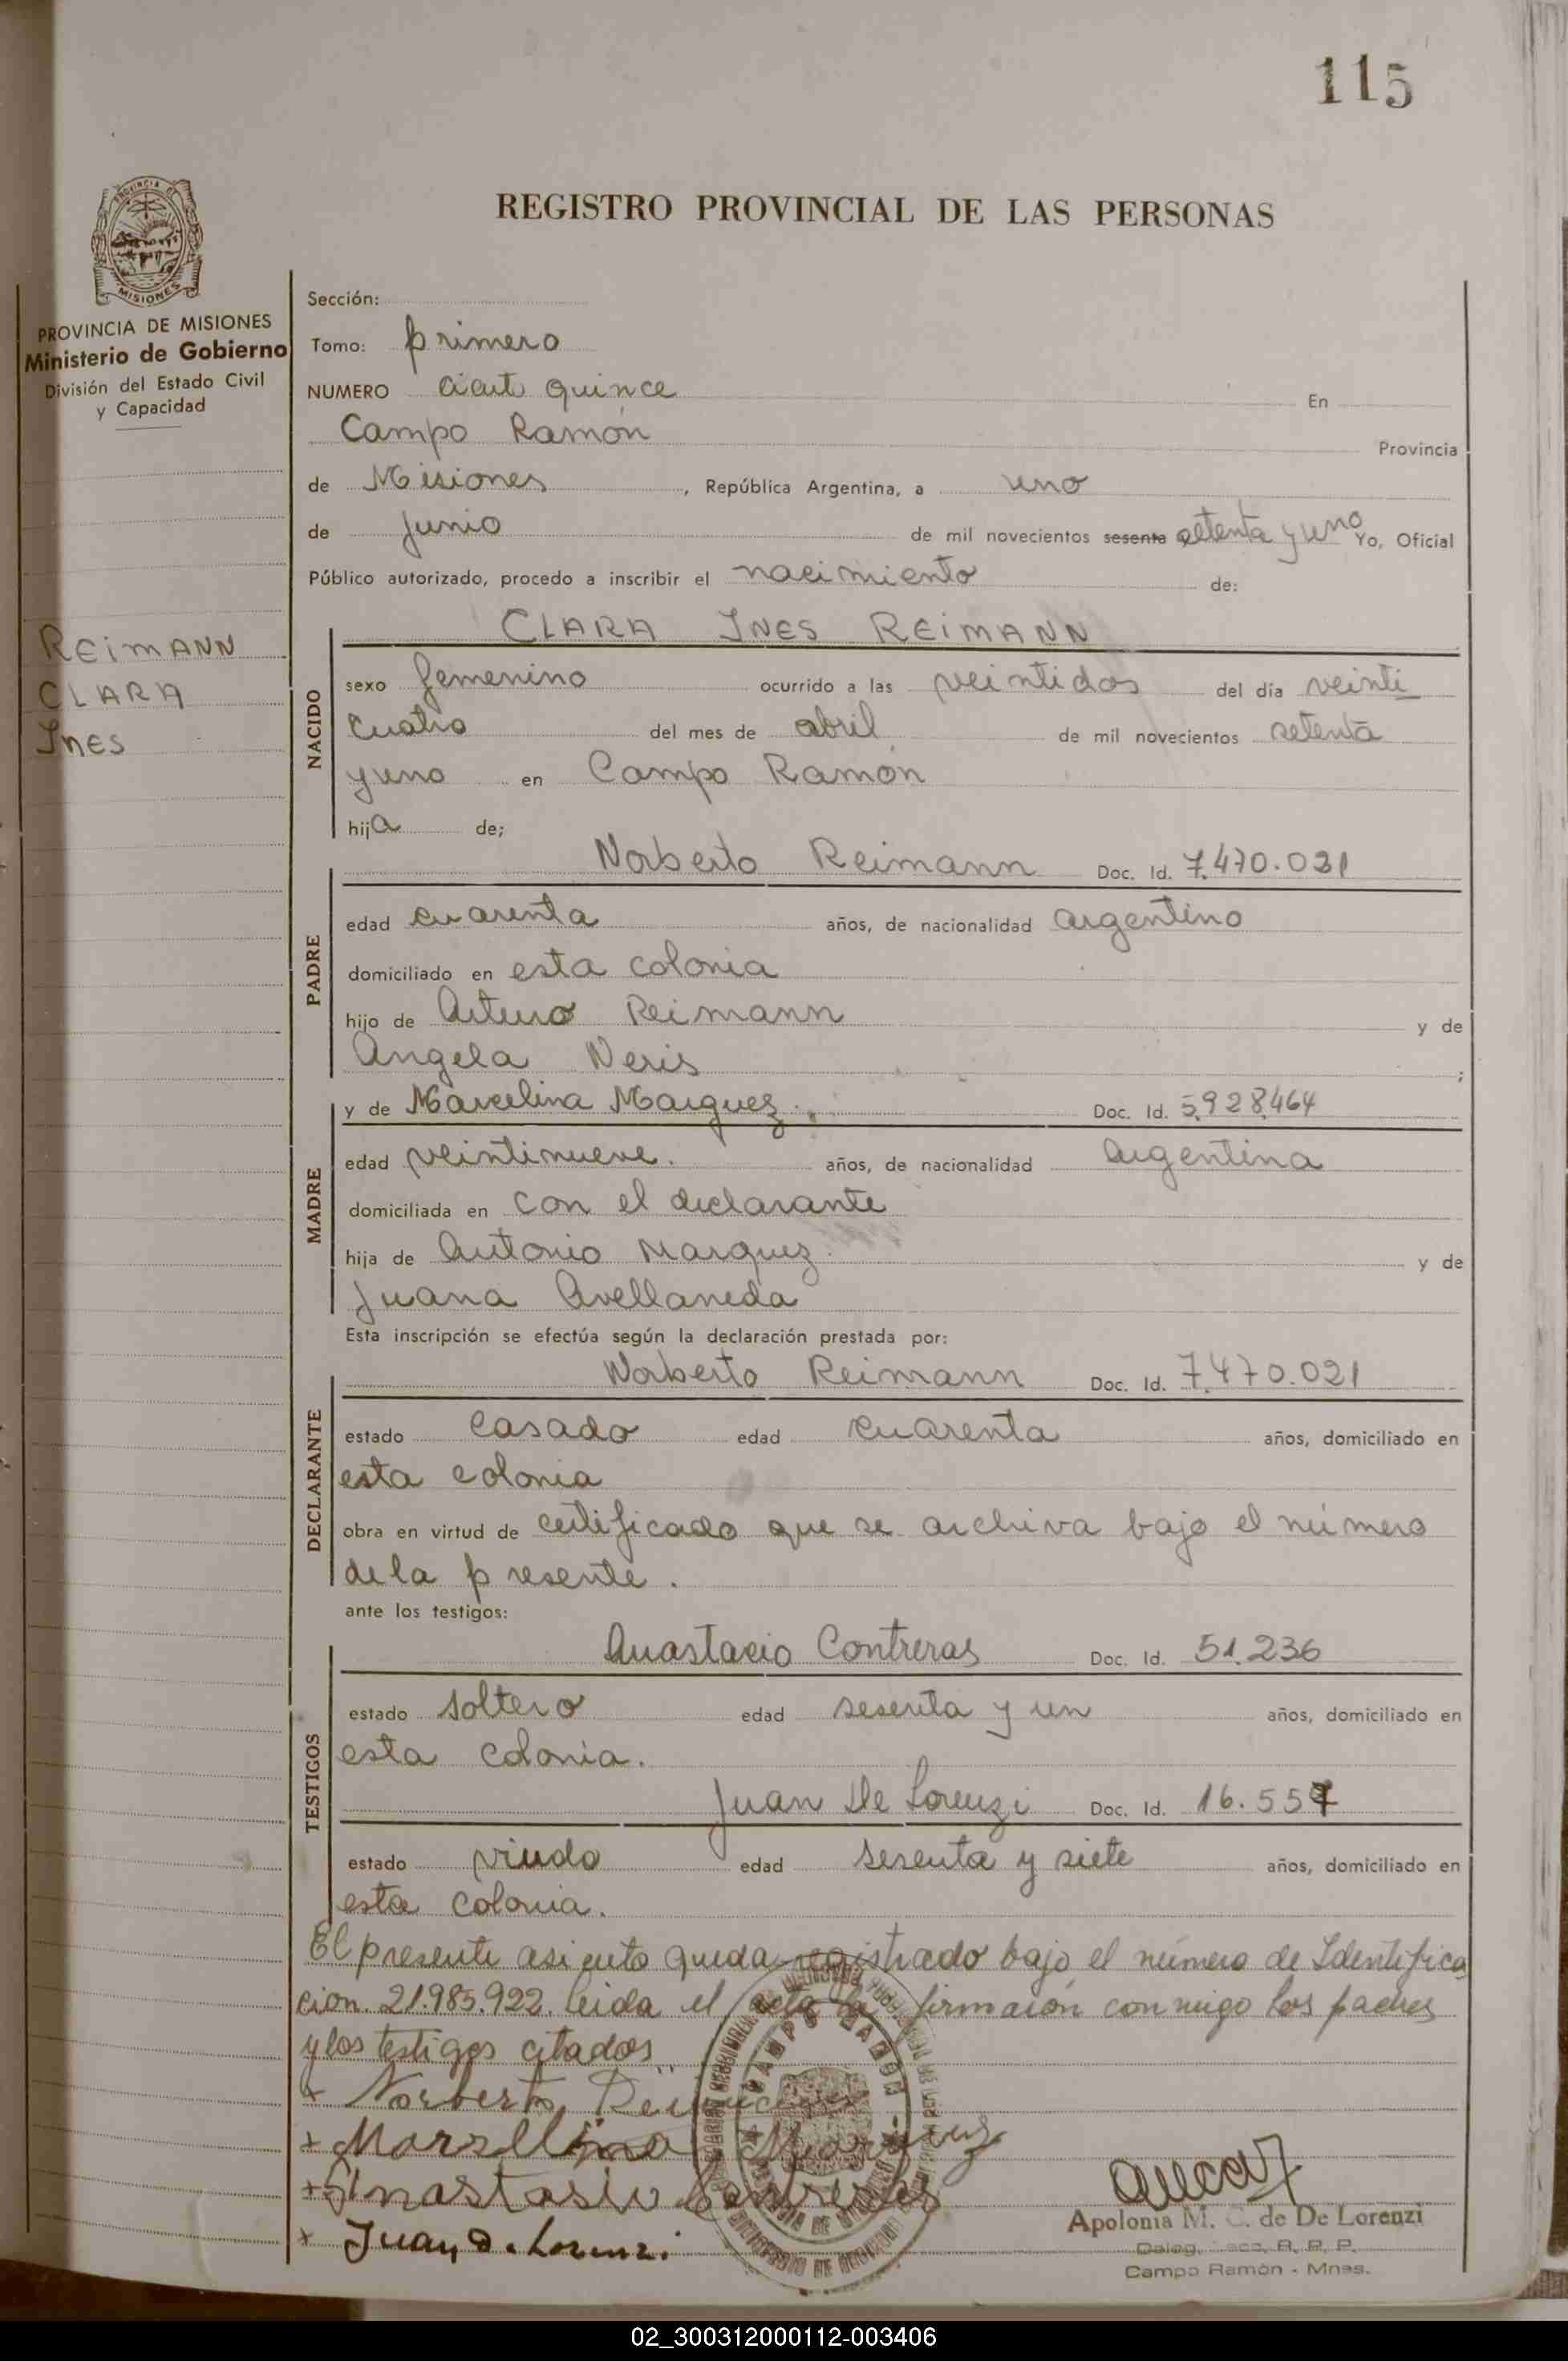 115
REGISTRO PROVINCIAL DE LAS PERSONAS
PROVINCIA DE
MISIONES
PROVINCIA DE MISIONES
Ministerio de Gobierno
División del Estado Civil
y Capacidad
REIMANN
CLARA
Ines
Sección:
Tomo: primero
NUMERO ciento quince En
Campo Ramón Provincia
de Misiones, República Argentina, a uno
de Junio de mil novecientos sesenta setenta y uno Yo, Oficial
Público autorizado, procedo a inscribir el nacimiento de:
CLARA INES REIMANN
NACIDO
sexo femenino ocurrido a las veintidos del día veinti
cuatro del mes de abril de mil novecientos setenta
y uno en Campo Ramón
hija de;
PADRE
Norberto Reimann Doc. Id. 7.470.021
edad cuarenta años, de nacionalidad argentino
domiciliado en esta colonia
hijo de Arturo Reimann y de
Angela Neris ;
MADRE
y de Marcelina Marquez. Doc. Id. 5.928.464
edad veintinueve. años, de nacionalidad Argentina
domiciliada en con el declarante
hija de Antonio Marquez y de
Juana Avellaneda
Esta inscripción se efectúa según la declaración prestada por:
DECLARANTE
Norberto Reimann Doc. Id. 7.470.021
estado casado edad cuarenta años, domiciliado en
esta colonia
obra en virtud de certificado que se archiva bajo el número
de la presente.
ante los testigos:
TESTIGOS
Anastacio Contreras Doc. Id. 51.236
estado soltero edad sesenta y un años, domiciliado en
esta colonia.
Juan De Lorenzi Doc. Id. 16.557
estado viudo edad sesenta y siete años, domiciliado en
esta colonia.
El presente asiento queda registrado bajo el número de Identifica
cion 21.985.922. leida el acta la firmaron conmigo los padres
y los testigos citados.
+ Norberto Reimann
+ Marsellina Marquez
+ Anastasio Contreras
+ Juan D. Lorenzi.
CAMPO RAMON
Apolonia M. C. de De Lorenzi
Deleg. R. P. P.
Campo Ramón - Mnes.
02_300312000112-003406